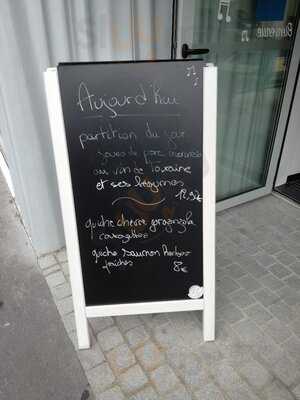 Aujourd'hui
partition du jour
joues de porc marinées
au vin de Touraine
et ses légumes
12,90€
quiche chèvre gorgonzola
courgettes
quiche saumon herbes
fraîches 8€
Bienvenue